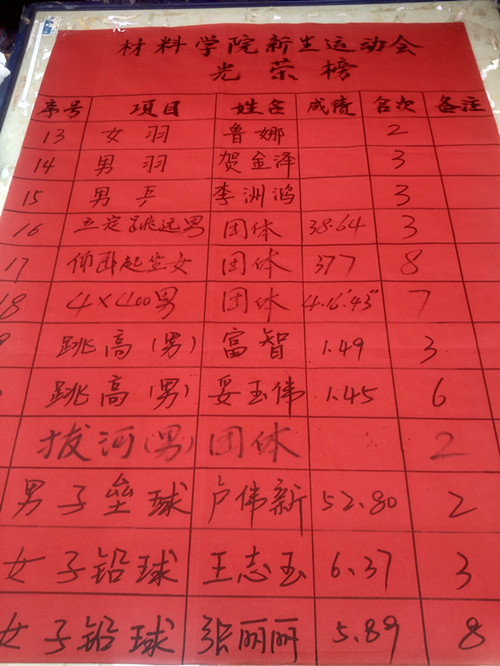 材料学院新生运动会
光荣榜
序号 项目 姓名 成绩 名次 备注
13 女羽 鲁娜 2
14 男羽 贺金泽 3
15 男乒 李洲鸿 3
16 立定跳远男 团体 38.64 3
17 仰卧起坐女 团体 377 8
18 4×400男 团体 4.16'43" 7
跳高(男) 富智 1.49 3
跳高(男) 妥玉伟 1.45 6
拔河(男) 团体 2
男子垒球 卢伟新 52.80 2
女子铅球 王志玉 6.37 3
女子铅球 张丽丽 5.89 8